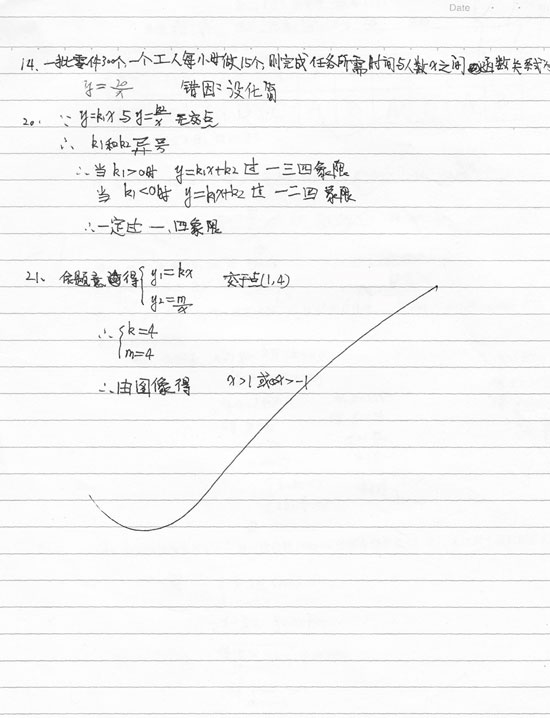 Date
14、一批零件300个,一个工人每小时做15个,则完成任务所需时间与人数x之间的函数关系式为
y=20/x 错因:没化简
20. ∵ y=k₁x与y=k₂/x 无交点
∴ k₁和k₂异号
∴当k₁>0时 y=k₁x+k₂过 一三四象限
当 k₁<0时 y=k₁x+k₂过 一二四 象限
∴一定过 一、四象限
21、 由题意得{y₁=kx 交于点(1,4)
y₂=m/x
∴ {k=4
m=4
∴由图像得 x>1 或 0>x>-1